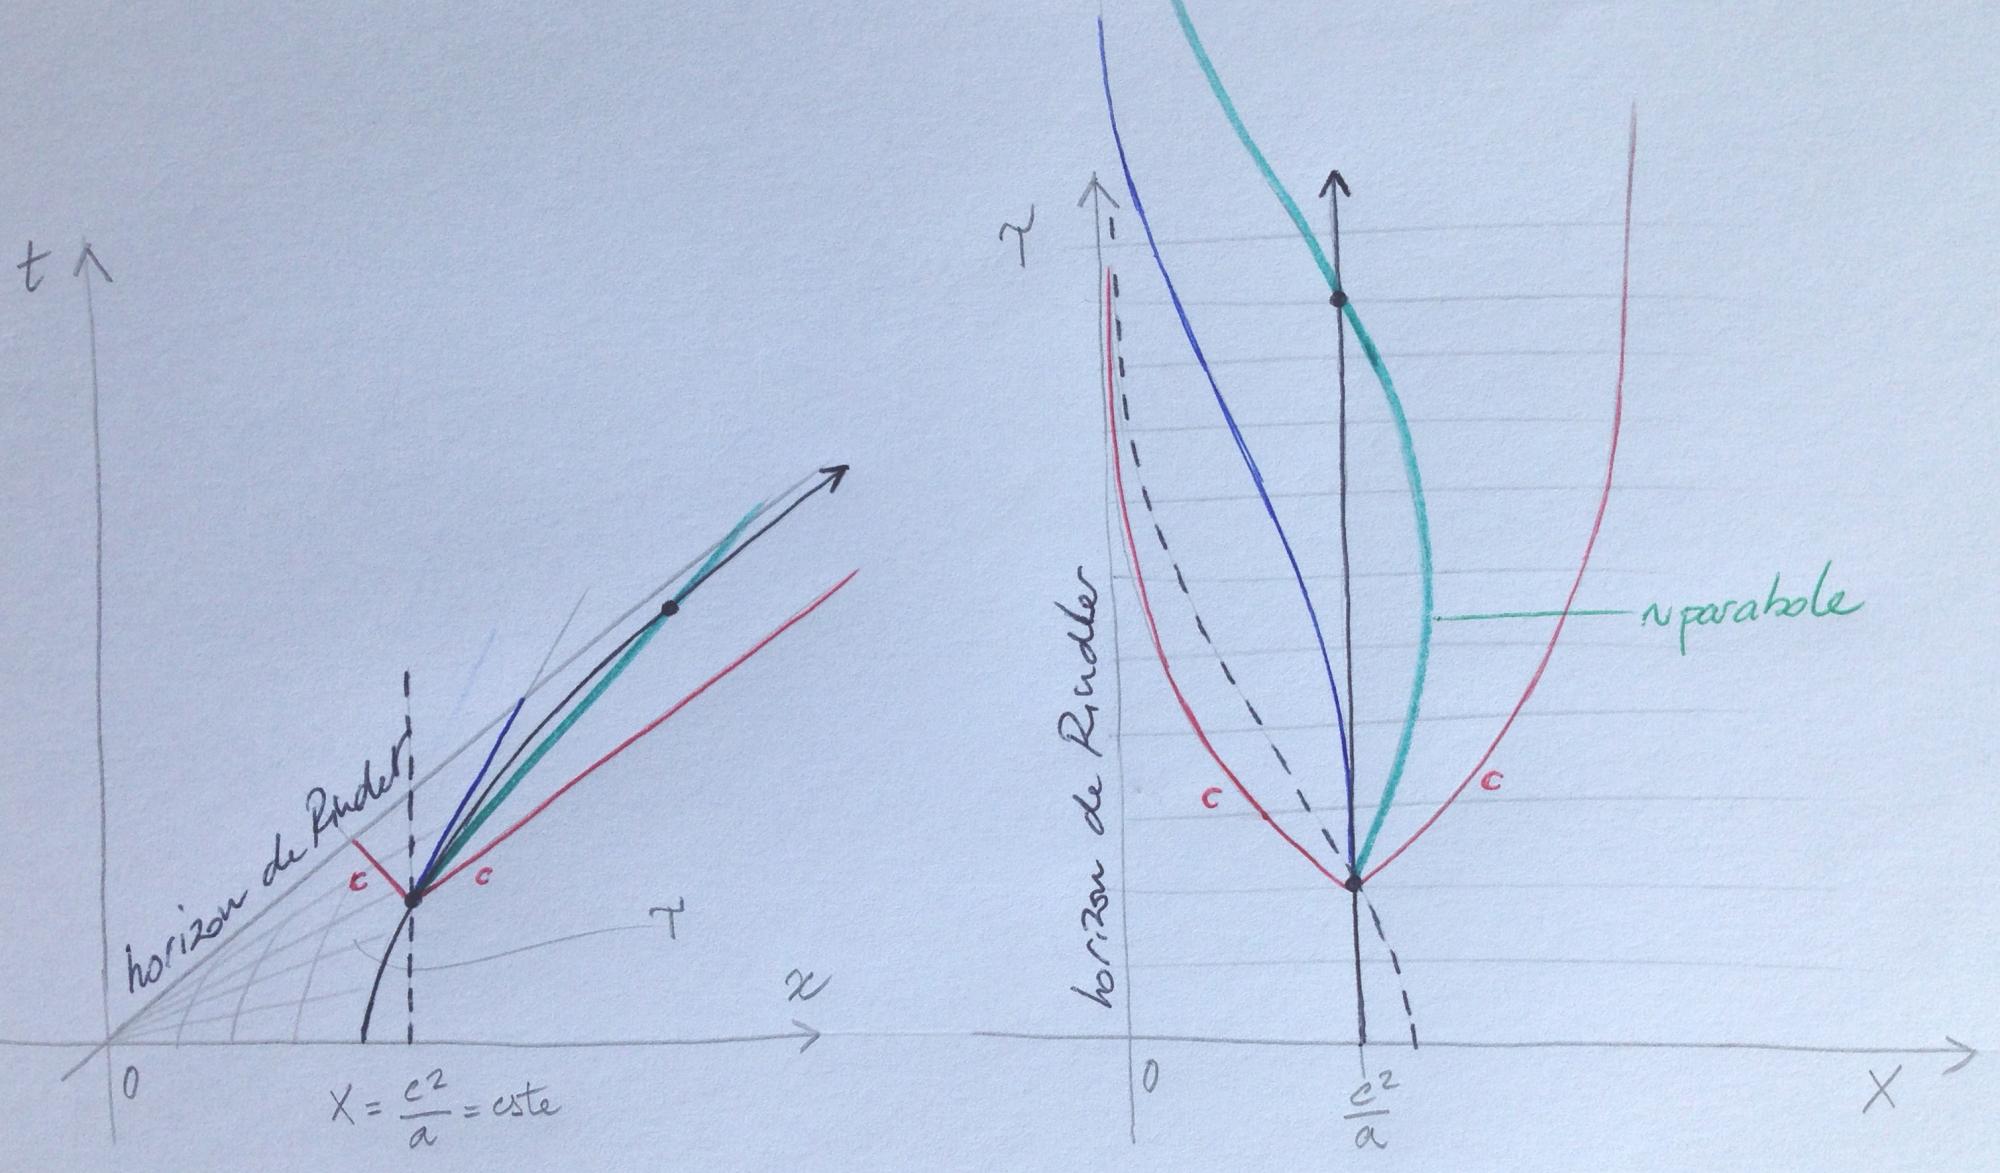 t
horizon de Rindler
c
c
τ
x
0
X = c²/a = cste
τ
horizon de Rindler
c
c
~parabole
0
c²/a
X